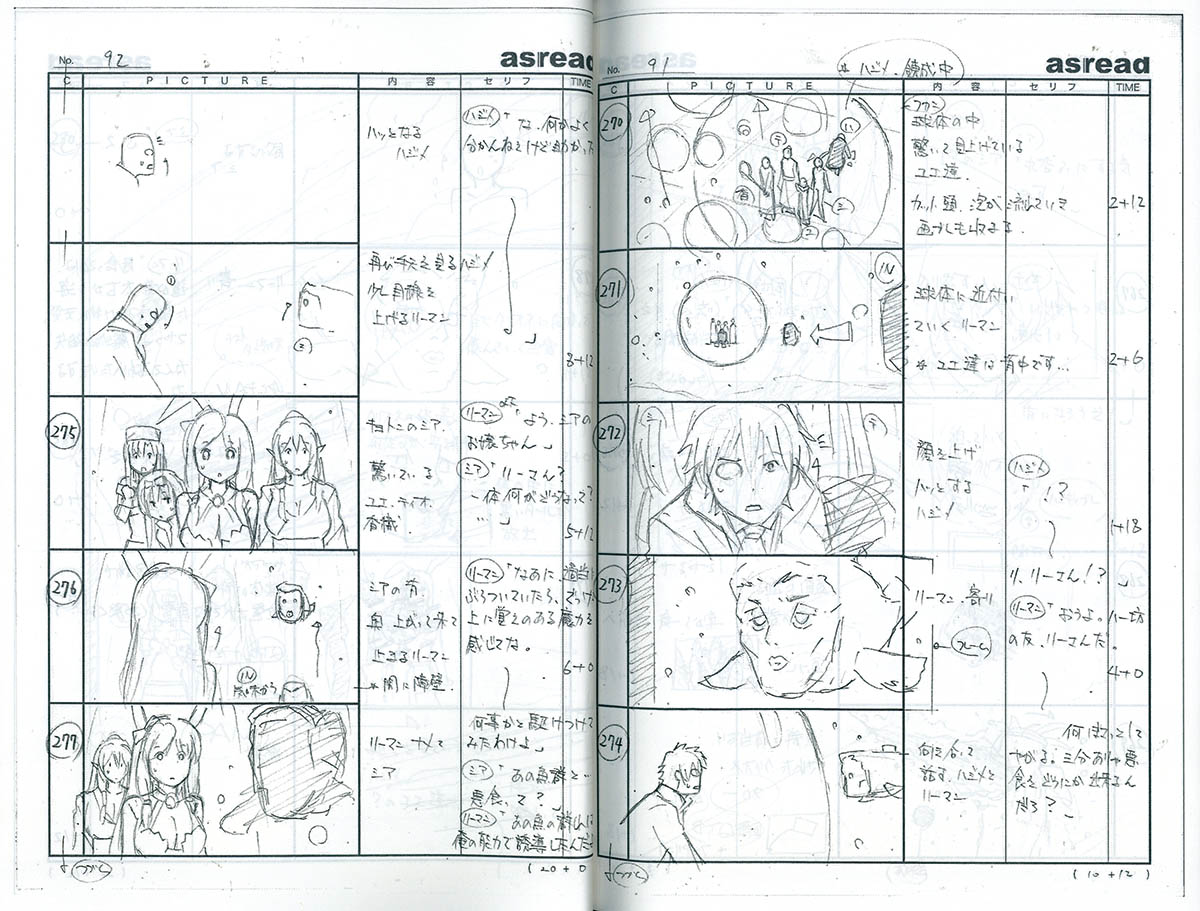 No. 91
asread
C PICTURE 内容 セリフ TIME
※ ハジメ、錬成中
270
球体の中
驚いて見上げている
ユエ達。
2+12
271
IN
球体に近付い
ていくリーマン
※ユエ達は背中です…
2+6
272
顔を上げ
ハッとする
ハジメ
ハジメ
!?
1+18
273
リ、リーさん!?
リーマン、寄り
リーマン「おうよ。ハー坊
の友、リーさんだ。
フレーム
4+0
274
向き合って
話す、ハジメと
リーマン
何ぼさっとして
やがる。三分ありゃ悪
食をどうにか出来るん
だろ?」
つづく
(10+12)
No. 92
asread
C PICTURE 内容 セリフ TIME
ハッとなる
ハジメ
ハジメ「な、何かよく
分かんねぇけど助かった
再び手元を見るハジメ
少し目線を
上げるリーマン
」
8+12
275
キョトンのシア、
驚いている
ユエ、ティオ、
香織
リーマン「よう、シアの
お嬢ちゃん」
シア「リーさん?
一体何がどうなって?
…」
5+12
276
IN
シアの前、
奥上がって来て
止まるリーマン
※間に障壁、
リーマン「なあに、適当に
ぶらついていたら、
上に覚えのある魔力を
感じてな。
6+0
277
リーマンナメで
シア
何事かと駆けつけて
みたわけよ」
シア「あの魚群と…
悪食って?」
リーマン「あの魚の群れは
俺の能力で誘導したんだ
つづく
(20+0